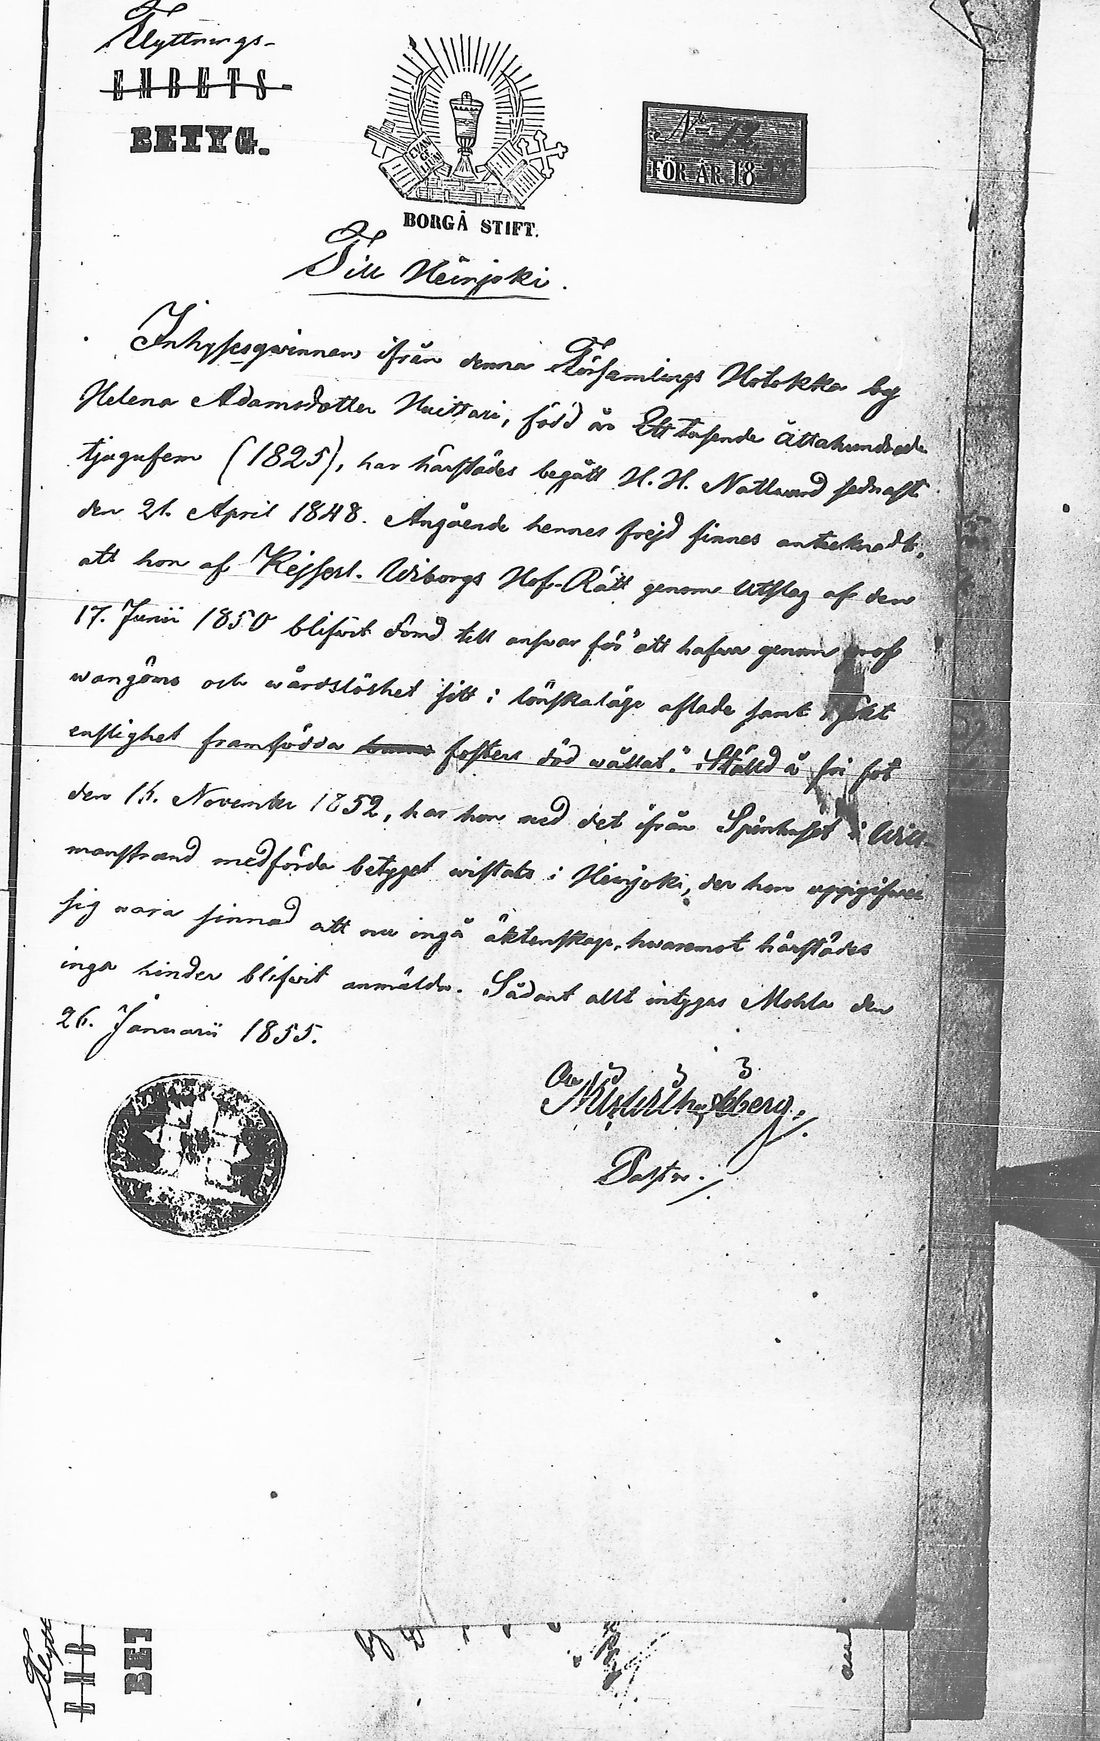 Flyttnings-
EMBETS-
BETYG.
EVAN
GE
LIUM
BORGÅ STIFT.
No 12
FÖR ÅR 18
Till Heinjoki.
Inhysesqwinnan ifrån denna Församlings Hotokka by
Helena Adamsdotter Huittari, född år Ett tusende åttahundrade
tjugufem (1825), har härstädes begått H. H. Nattvard sednast
den 21. April 1848. Angående hennes frejd finnes anteknadt,
att hon af Kejserl. Wiborgs Hof-Rätt genom Utslag af den
17. Junii 1850 blifvit dömd till answar för "att hafwa genom grof
wangömo och wårdslöshet sitt i lönskaläge aflade samt i sökt
enslighet framfödda fosters död wållat." Ställd å fri fot
den 15. November 1852, har hon med det ifrån Spinhuset i Will-
manstrand medförda betyget wistats i Heinjoki, der hon uppgifwit
sig wara sinnad att nu ingå äktenskap, hwaremot härstädes
inga hinder blifvit anmälda. Sådant allt intygas Mohla den
26. Januarii 1855.
Pastor.
Flytt
EMB
BET